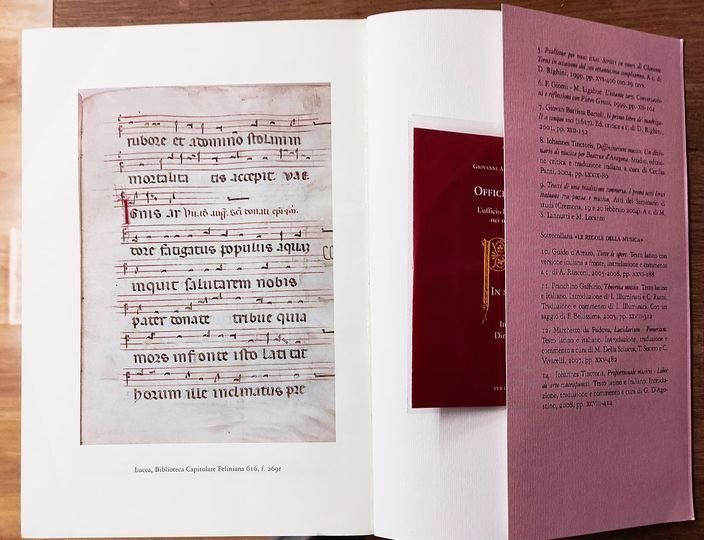 rubore et adomino stolam in
mortalita tis accepit vae
Ignis ar
dore fatigatus populus aquaz
inquit salutarem nobis
pater donate tribue quia
mors inf onte isto lati tat
horum ille inclinatus pre
Lucca, Biblioteca Capitolare Feliniana 616, f. 269r
GIOVANNI A
OFFIC
L'ufficio
nei
IN S
In
Di
PER I
5. Psallitur per voces istas. Scritti in onore di Clemente
Terni in occasione del suo ottantesimo compleanno. A c. di
D. Righini, 1999, pp. XVI-406 con 29 tavv.
6. F. Giomi - M. Ligabue. L'istante zero. Conversazio-
ni e riflessioni con Pietro Grossi, 1999, pp. XII-104
7. Giovan Battista Bartoli, Il primo libro de' madriga-
li a cinque voci (1617). Ed. critica a c. di D. Righini,
2001, pp. XLII-152
8. Iohannes Tinctoris, Diffinitorium musice. Un dizio-
nario di musica per Beatrice d'Aragona. Studio, edizio-
ne critica e traduzione italiana a cura di Cecilia
Panti, 2004, pp. LXXIX-80
9. Tracce di una tradizione sommersa. I primi testi lirici
italiani tra poesia e musica. Atti del Seminario di
studi (Cremona, 19 e 20 febbraio 2004). A c. di M.
S. Lannutti e M. Locanto
Sottocollana «LE REGOLE DELLA MUSICA»
10. Guido d'Arezzo, Le opere. Testo latino con
versione italiana a fronte, introduzione e commento
a c. di A. Rusconi, 2005-2008, pp. XXVI-188
11. Franchino Gaffurio, Theorica musice. Testo latino
e italiano. Introduzione di I. Illuminati e C. Ruini.
Traduzione e commento di I. Illuminati. Con un
saggio di F. Bellissima, 2005, pp. XXVII-312
12. Marchetto da Padova, Lucidarium - Pomerium.
Testo latino e italiano. Introduzione, traduzione e
commento a cura di M. Della Sciucca, T. Sucato e C.
Vivarelli, 2007, pp. XXV-482
14. Iohannes Tinctoris, Proportionale musices - Liber
de arte contrapuncti. Testo latino e italiano. Introdu-
zione, traduzione e commento a cura di G. D'Ago-
stino, 2008, pp. XCVIII-424